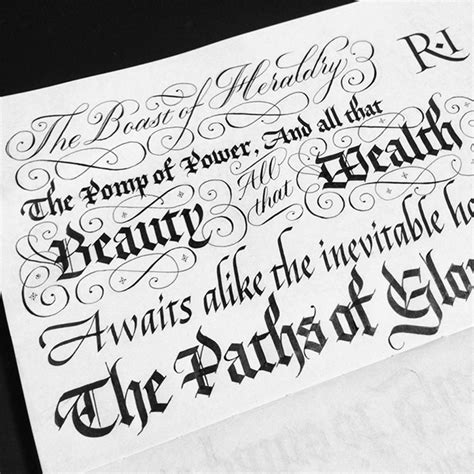 R·I
The Boast of Heraldry
The Pomp of Power, And all that
Beauty All that Wealth
Awaits alike the inevitable ho
The Paths of Glo